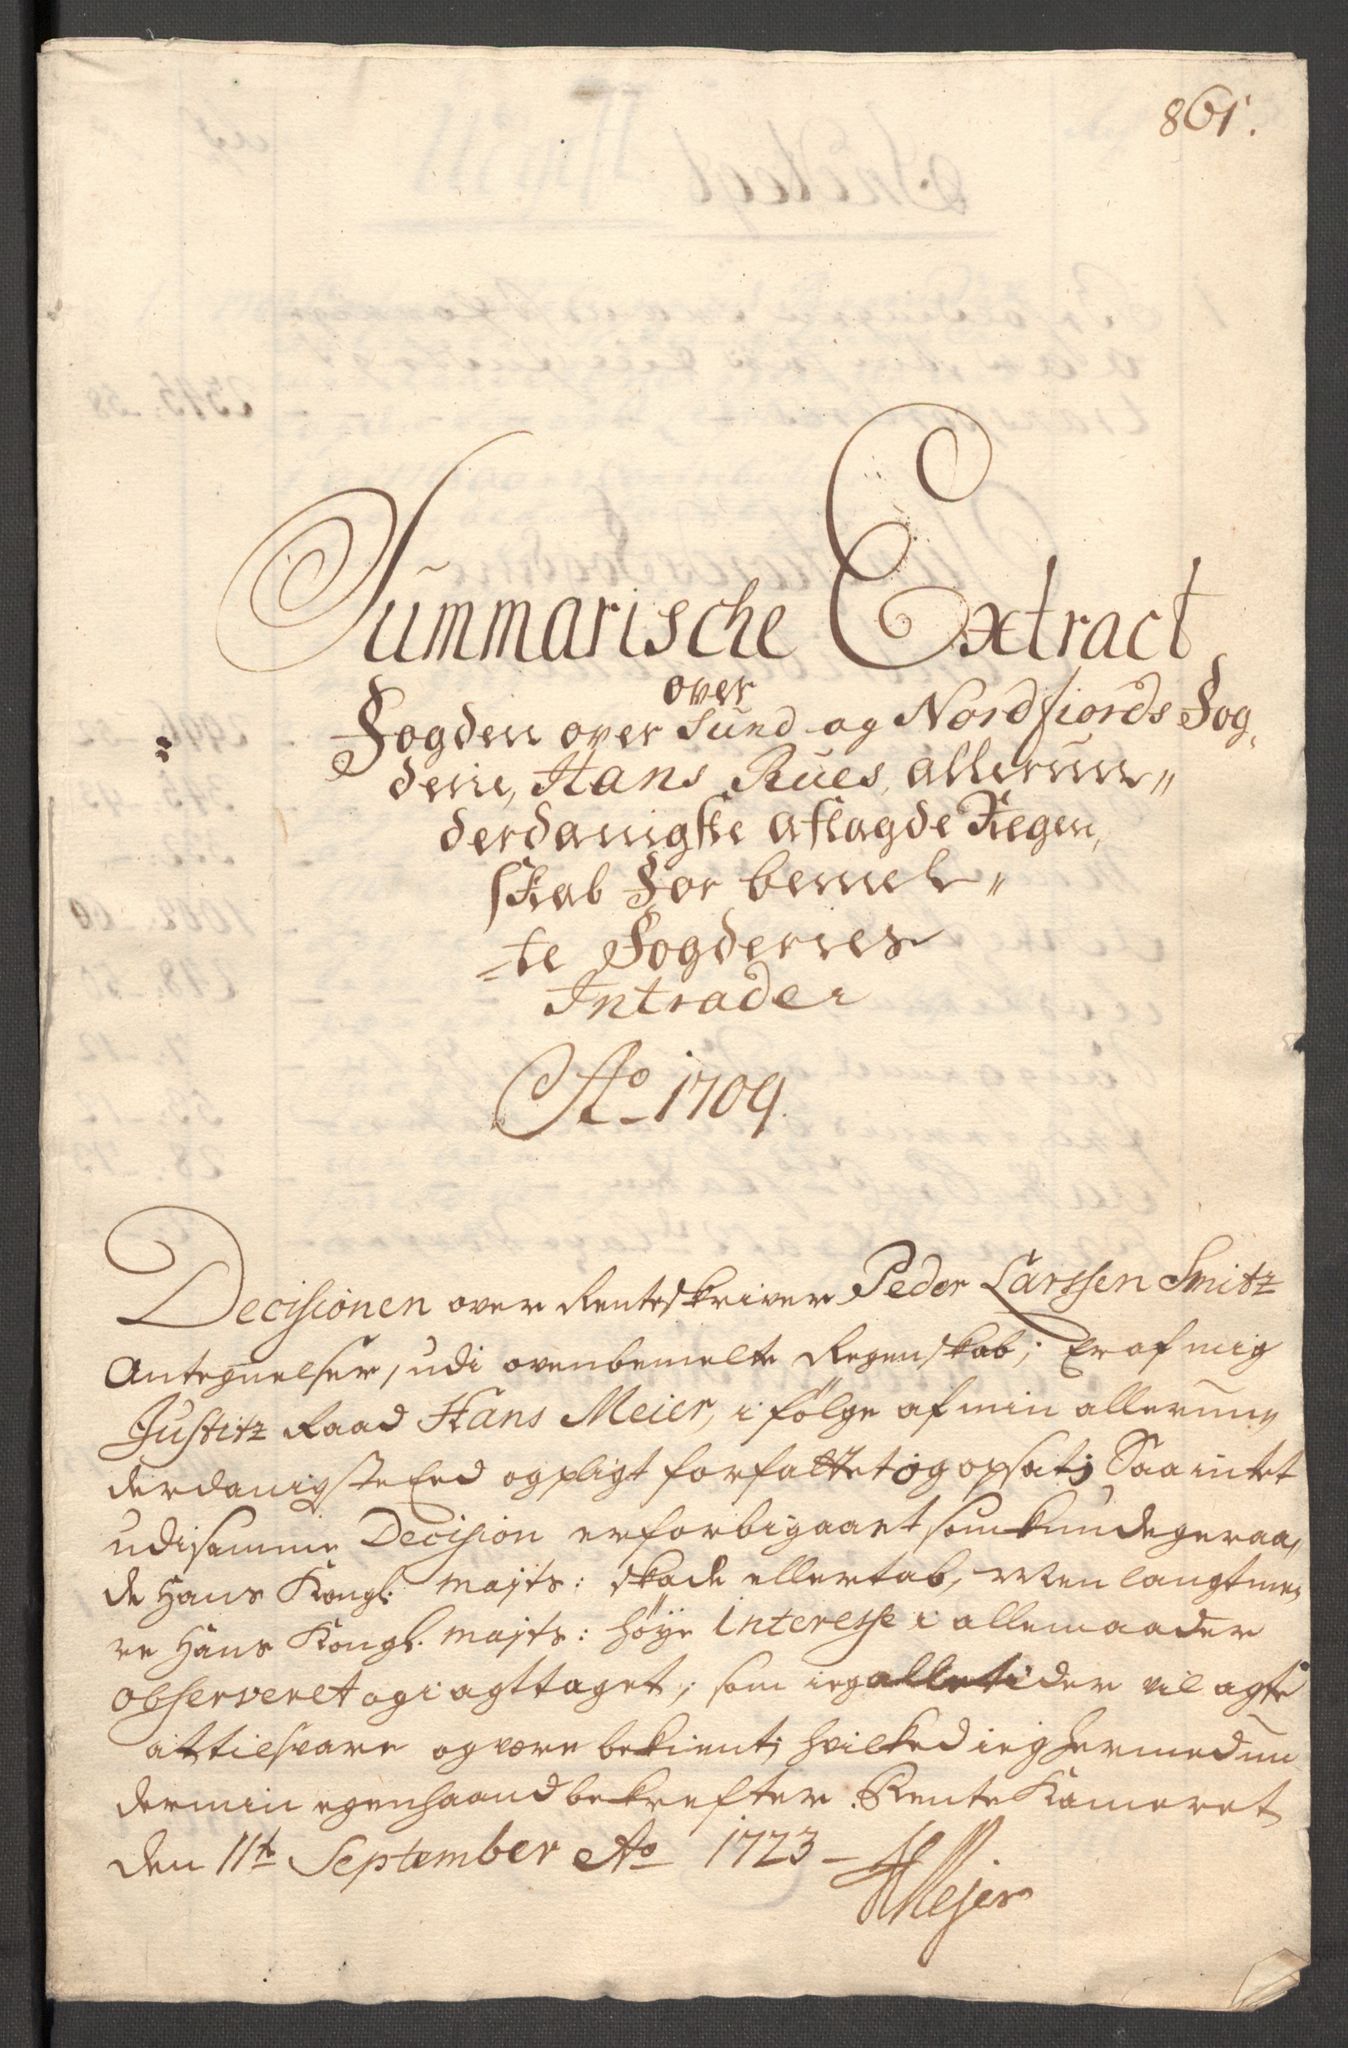 861.
Summarische Extract
over
Fogden over Sund og Nordfiords Fog-
derie, Hans Rues, allerun-
derdanigste aflagde Regen-
skab For bemel-
te Fogderies
Intrader
Ao 1709.
Decisionen over Renteskriver Peder Larssen Smitz
Antegnelser, udi ovenbemelte Regenskab; Er af mig
Justitz Raad Hans Meier, i følge af min allerun-
derdanigste Eed og pligt forfattet og opsat; Saa intet
udi samme Decision er forbigaaet som kunde geraa-
de Hans Kongl: Majts: skade eller tab, Men langt me-
re Hans Kongl: Majts: høje Interesse i alle maader
observeret og i agt taget; som ieg alletider vil agte
at tilsvare og være bekient; hvilked ieg hermed un-
der min egen haand bekrefter. Rente Kameret
den 11te September Ao 1723 –
HMejer